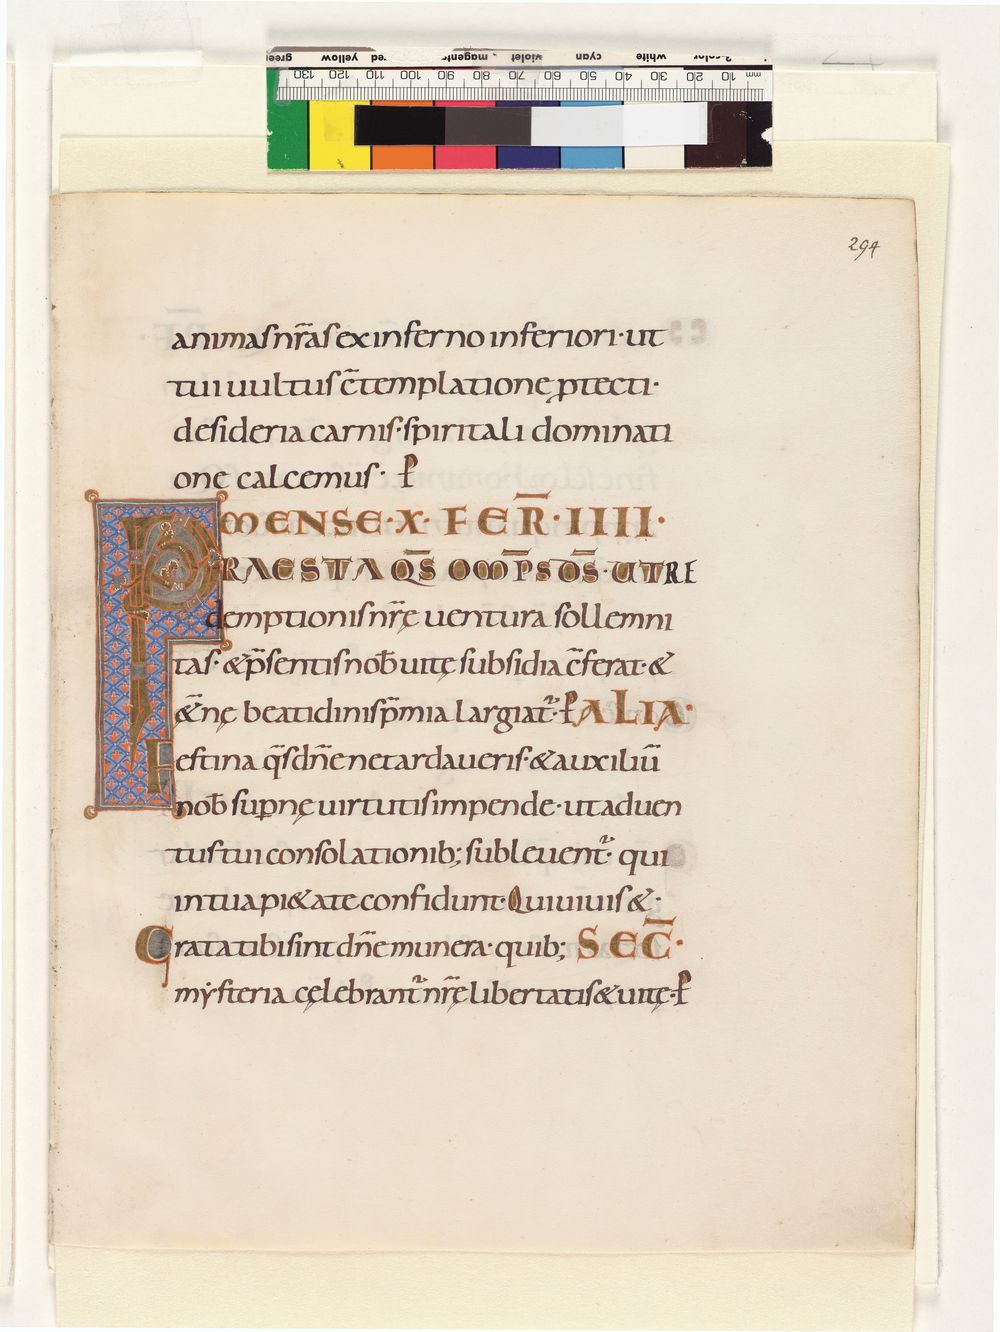 green yellow red magenta violet cyan white 3-color
130 120 110 100 90 80 70 60 50 40 30 20 10 mm
294
animas nr̄as ex inferno inferiori· ut
tui uultus c̄templatione ꝓtecti·
desideria carnis· spiritali dominati
one calcemus· ꝑ
MENSE·X· FER̄·IIII·
PRAESTA QS̄ OMP̄S DS̄· UT RE
demptionis nr̄ę uentura sollemni
tas· & p̄sentis nob̄ uitę subsidia c̄ferat· &
&̄nę beatidinis p̄mia largiat᷑· ꝑ ALIA·
Festina q̄s dn̄e ne tardaueris· & auxiliū
nob̄ supnę uirtutis impende· ut aduen
tus tui consolationib; subleuent᷑· qui
in tua pi&ate confidunt· Qui uiuis &·
Grata tibi sint dn̄e munera· quib; SEC̄·
mẏsteria cęlebrant᷑ nr̄ę libertatis & uitę· ꝑ